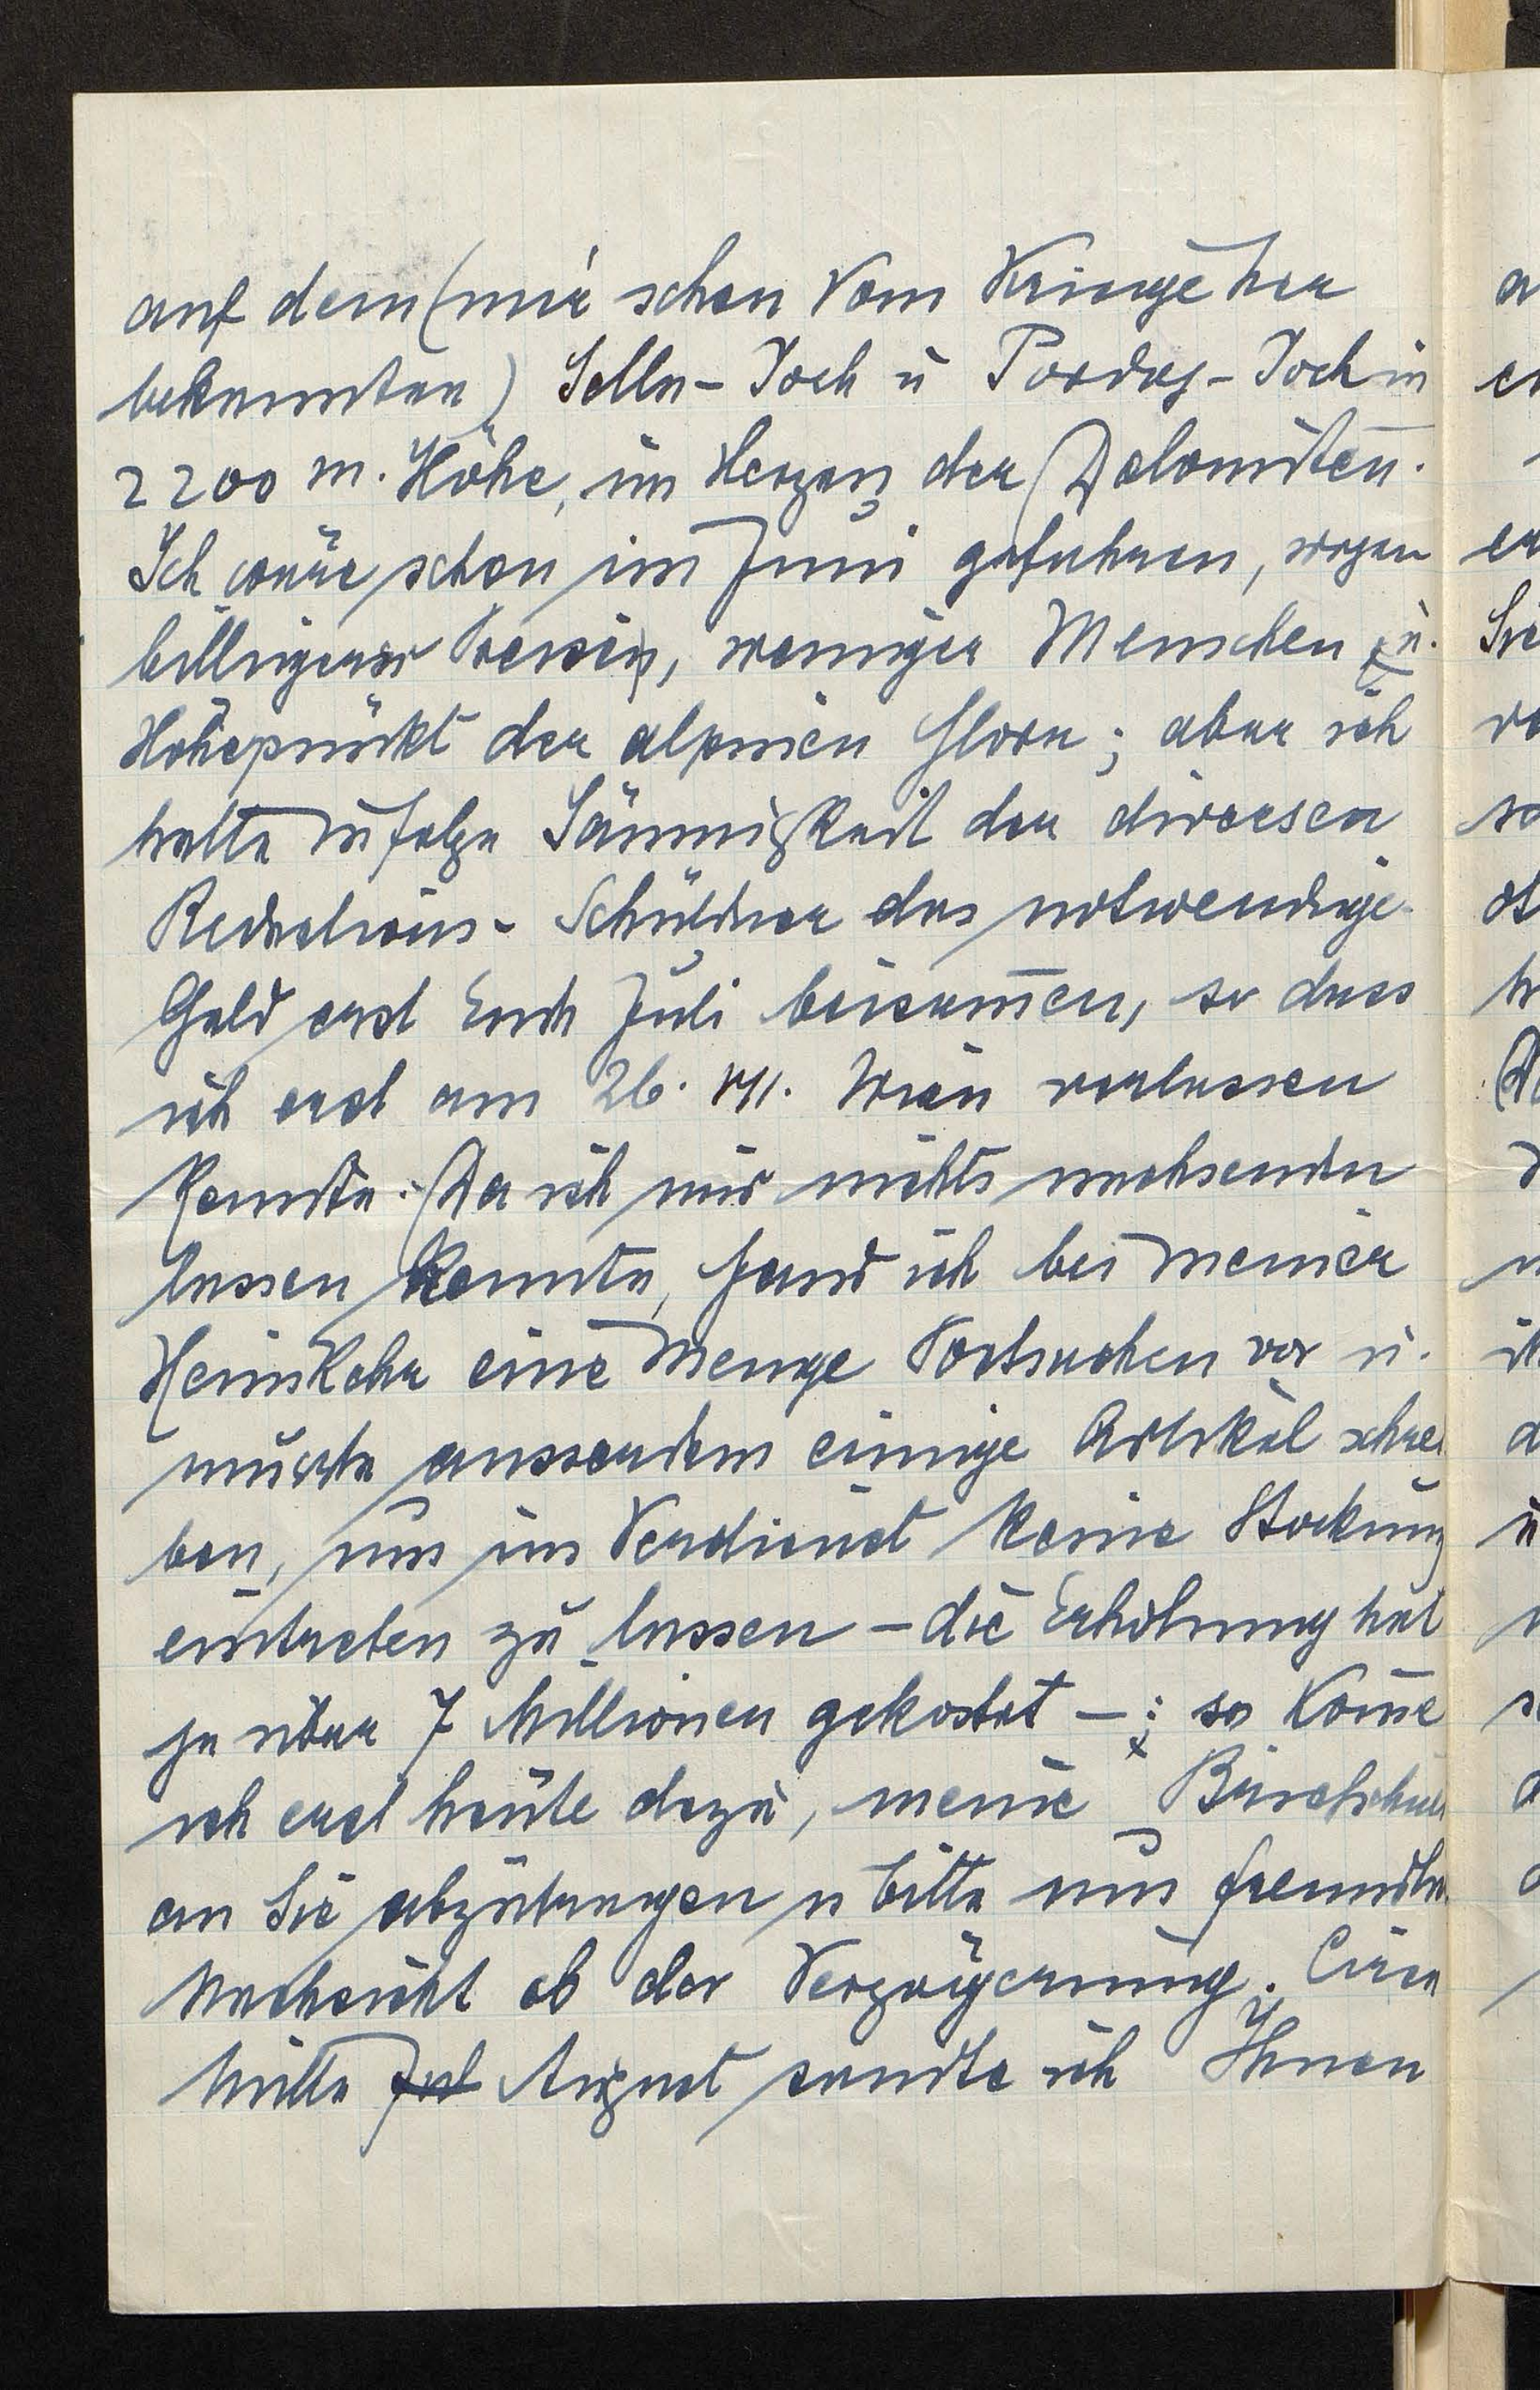 auf dem (mir schon vom Kriege her
bekannten) Sella-Joch u Pordoj-Joch in
2200 m. Höhe, im Herzen der Dolomiten.
Ich wäre schon im Juni gefahren, wegen
billigerer Preise, weniger Menschen u.
Höhepunkt der alpinen Flora; aber ich
hatte infolge Säumigkeit der diversen
Redactions-Schuldner das notwendige
Geld erst Ende Juli beisam̄en, so dass
ich erst am 26. VII. Wien verlassen
konnte. Da ich mir nichts nachsenden
lassen konnte, fand ich bei meiner
Heimkehr eine Menge Postsachen vor u.
musste ausserdem einige Artikel schrei
ben, um im Verdienst keine Stockung
eintreten zu lassen – die Erholung hat
ja über 7 Millionen gekostet –; so kom̄e
ich erst heute dazu, meine Briefschuld
an Sie abzutragen u bitte um freundliche
Nachsicht ob der Verzögerung. Circa
Mitte Jul August sandte ich Ihnen